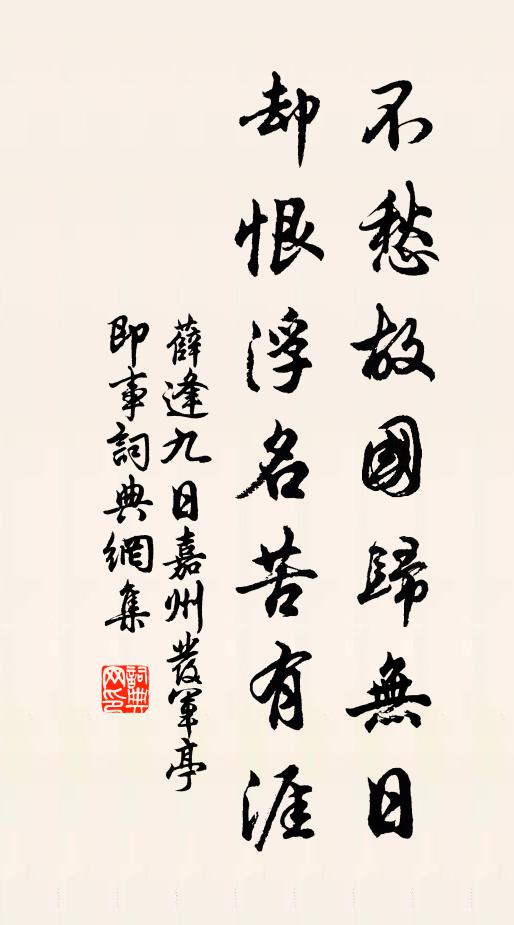 不愁故國歸無日
却恨浮名苦有涯
薛逢九日嘉州發軍亭
即事詞典網集
詞典網印